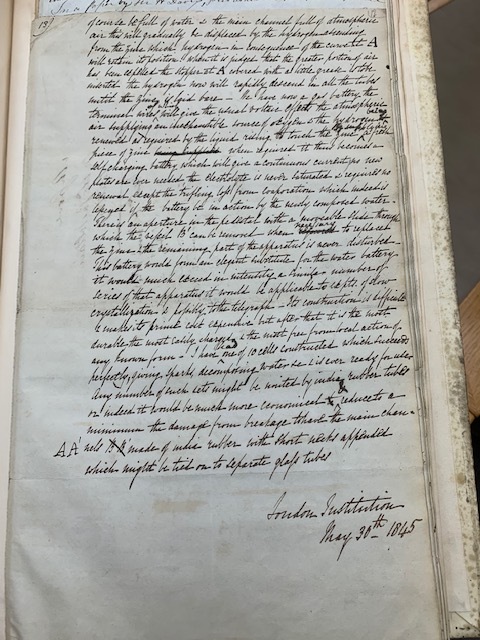 131
of course be full of water & the main channel full of atmospheric
air this will gradually be displaced by the hydrogen ascending
from the zinc which hydrogen in consequence of the curve at A
will retain its position. When it is judged that the greater portion of air
has been expelled the stopper at A covered with a little grease is to be
inserted the hydrogen now will rapidly descend in all the tubes
until the zinc is laid bare — We have now a gas battery the
terminal wires of which will give the usual voltaic effect the atmospheric
air supplying an inexhaustible source of oxygen & the hydrogen being
renewed as required by the liquid rising to touch the zinc
piece of zinc when required it thus becomes a
self charging battery which will give a continuous current no new
plates are ever needed the electrolyte is never saturated & requires no
renewal except the trifling loss from evaporation which indeed is
lessened if the battery be in action by the newly composed water.
There is an aperture in the pedestal with a moveable slide through
which the vessel B can be removed when necessary to replace
the zinc & the remaining part of the apparatus is never disturbed.
This battery would form an elegant substitute for the water battery
it would much exceed in intensity a similar number of
series of that apparatus it would be applicable to expts. of slow
crystallization & possibly to the telegraph. Its construction is difficult
& makes its prime cost expensive but after that it is the most
durable the most easily charged & the most free from local action of
any known form — I have had one of 10 cells constructed which succeeds
perfectly, giving sparks, decomposing water &c & is ever ready for use
Any number of such sets might be united by india rubber tubes
or indeed it would be much more economical & reduce to a
minimum the damage from breakage to have the main chan-
A A' nels made of india rubber with short necks appended
which might be tied on to separate glass tubes
London Institution
May 30th 1845